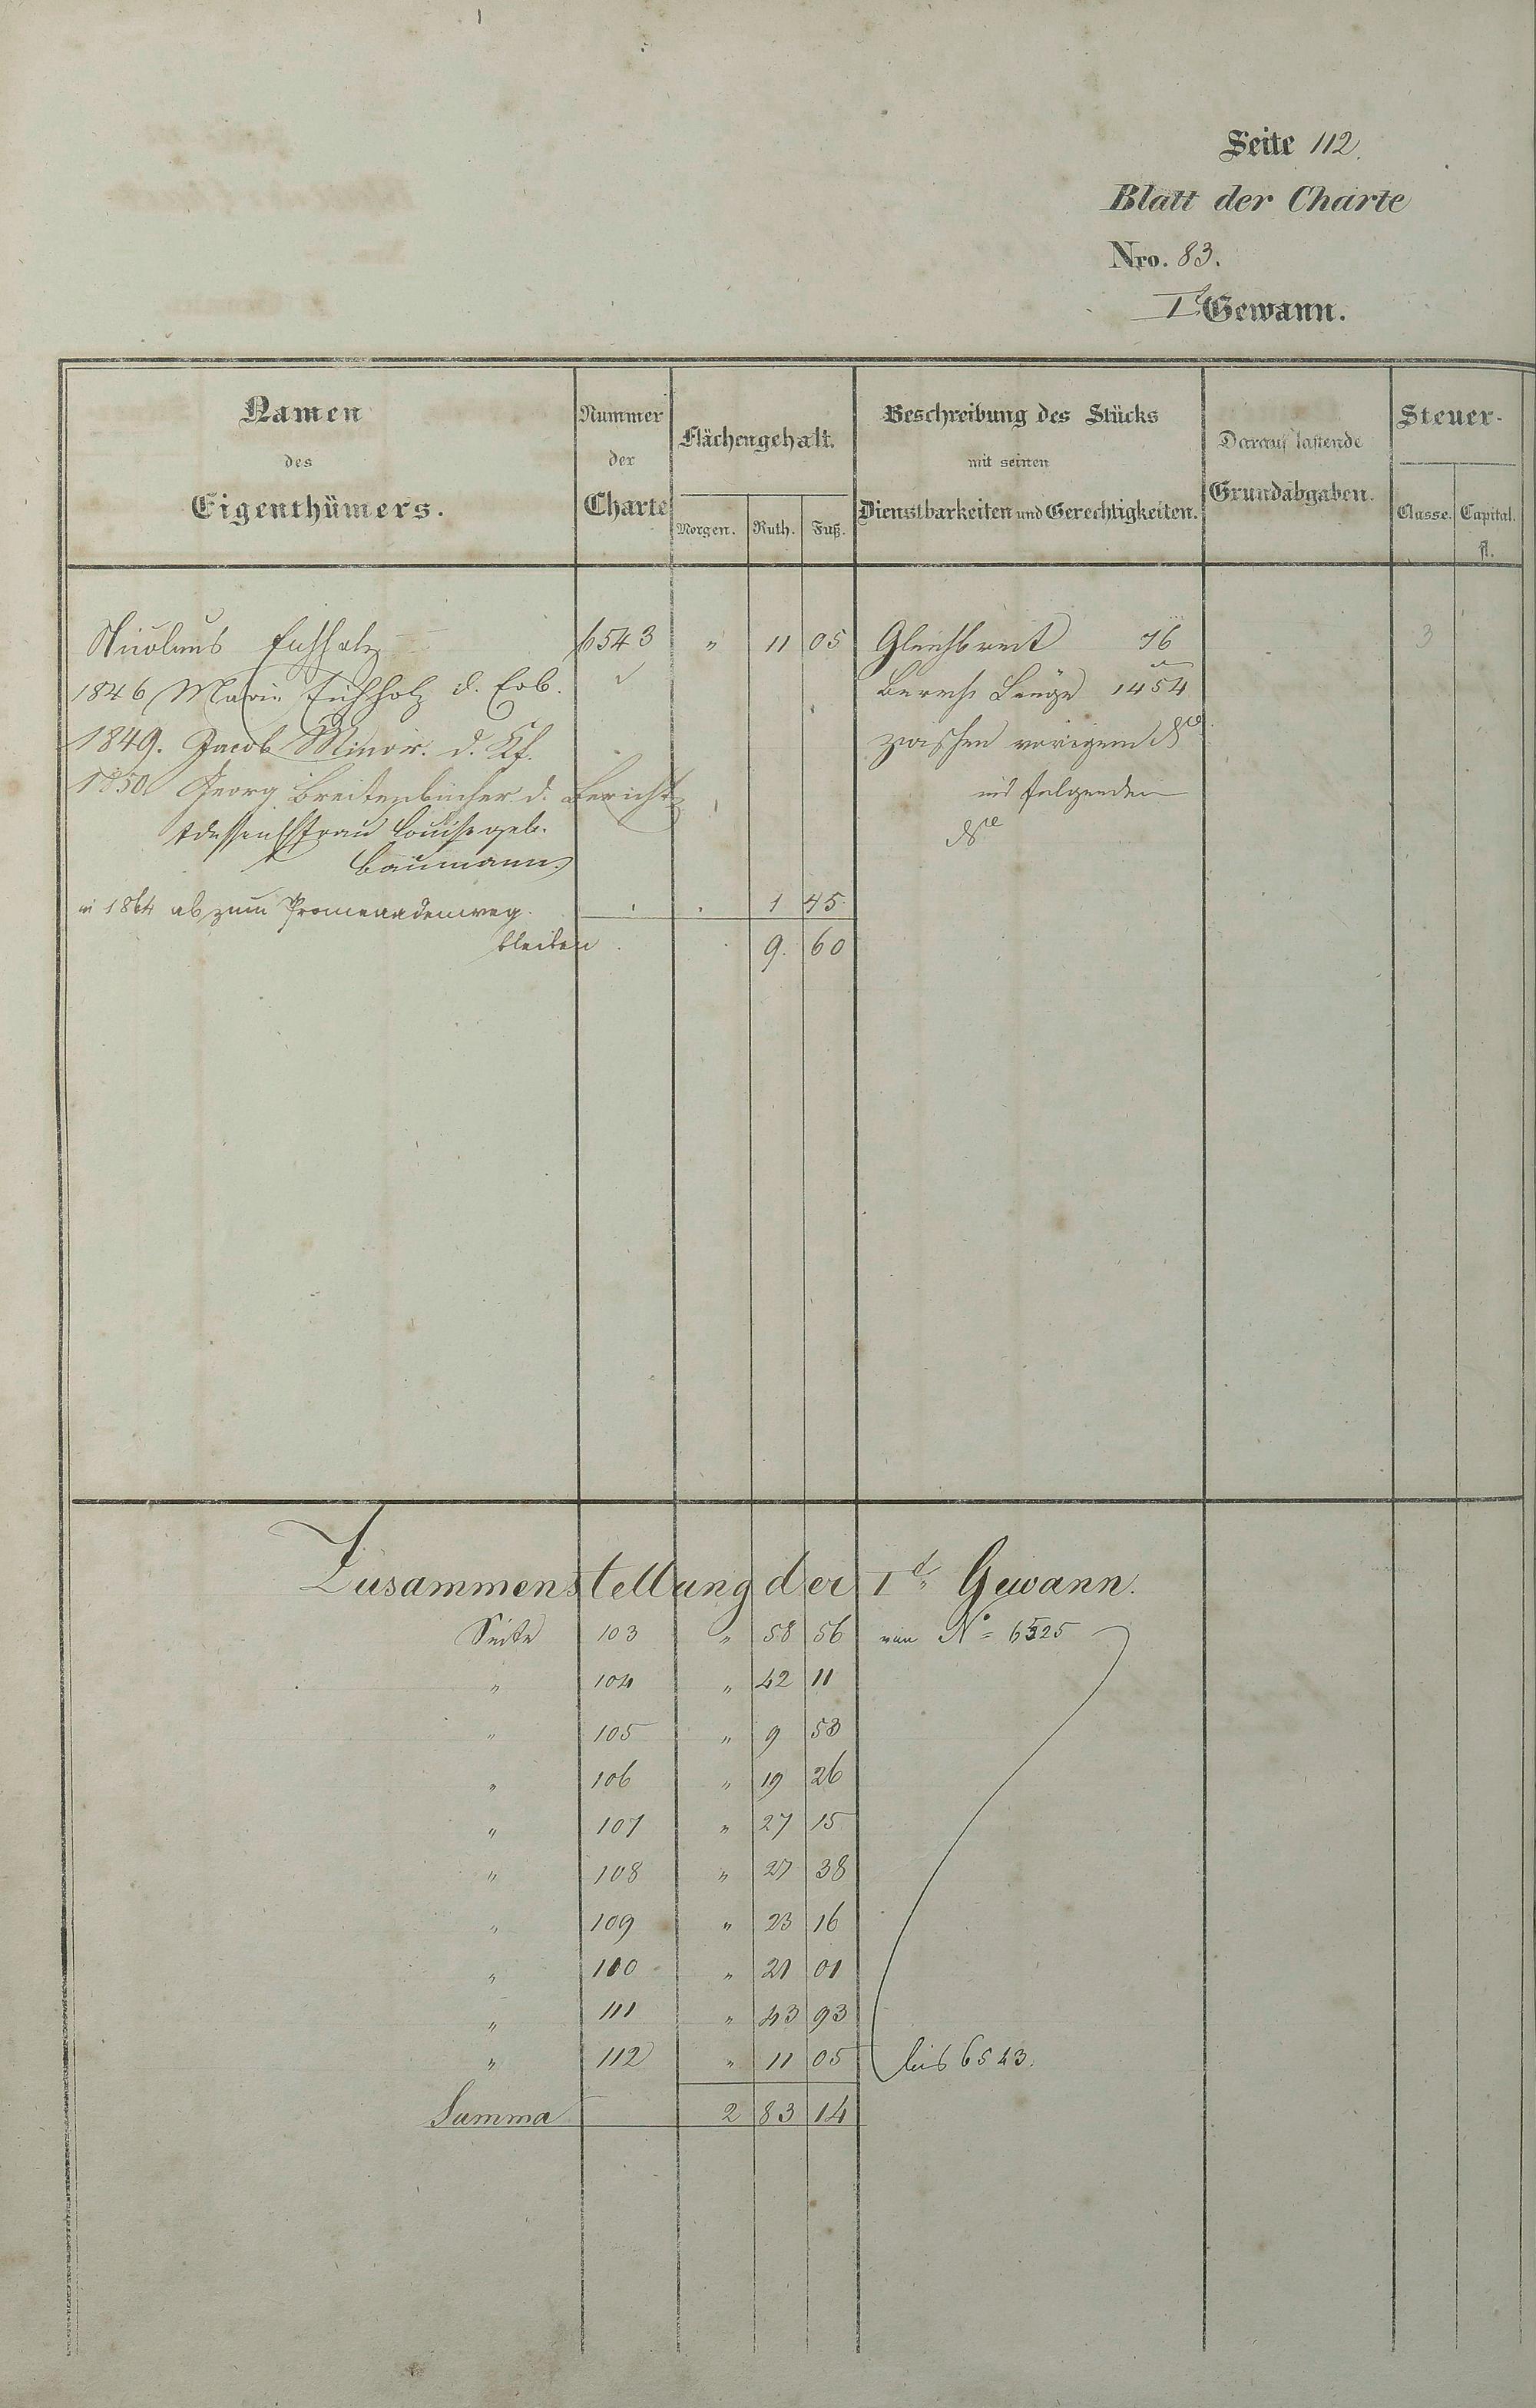 Seite 112.
Blatt der Charte
Nro. 83.
I Gewann.
Namen des Eigenthümers.
Nummer der Charte
Flächengehalt.
Morgen. Ruth. Fuß.
Beschreibung des Stücks mit seinen Dienstbarkeiten und Gerechtigkeiten.
Darauf lastende Grundabgaben.
Steuer-
Classe. Capital. fl.
Nicolaus Eichholz 6543 " 11 05 Gleichbreit 76 3
1846 Marie Eichholz d. Erb. Berech. Länge 1454
1849. Jacob Minor. d. Kf. zwischen vorigem
1850 Georg Breitenbücher d. Bericht. und folgenden
Ehefrau Louise geb.
Baumann.
in 1864 ab zum Promenadenweg. 1 45
bleiben 9. 60
Zusammenstellung der I Gewann.
Seite 103 " 58 56 von No = 6525
" 104 " 42 11
" 105 " 9 53
" 106 " 19 26
" 107 " 27 15
" 108 " 27 38
" 109 " 23 16
" 110 " 21 01
" 111 " 43 93
" 112 " 11 05 bis 6543.
Summa 2 83 14